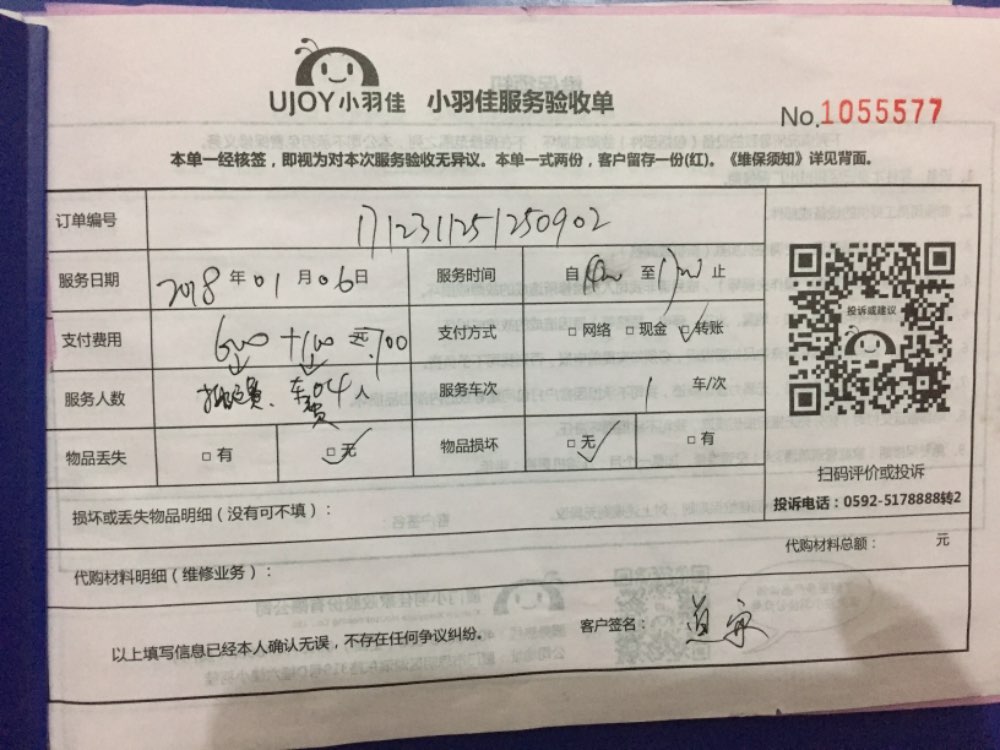 UJOY小羽佳 小羽佳服务验收单
No.1055577
本单一经核签，即视为对本次服务验收无异议。本单一式两份，客户留存一份(红)。《维保须知》详见背面。
订单编号 1712311251250902
服务日期 2018年01月06日 服务时间 自 至 止
支付费用 600+100 700 支付方式 □网络 □现金 □转账
服务人数 搬运费、车费 04人 服务车次 1 车/次
物品丢失 □有 □无 物品损坏 □无 □有
投诉或建议
扫码评价或投诉
投诉电话：0592-5178888转2
损坏或丢失物品明细（没有可不填）：
代购材料总额： 元
代购材料明细（维修业务）：
客户签名：
以上填写信息已经本人确认无误，不存在任何争议纠纷。